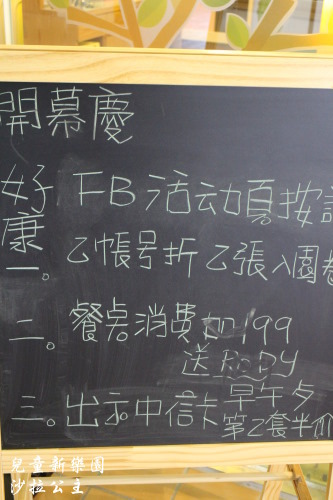 開幕慶
好康
一。FB活动頁按讚
乙帳号折乙張入園卷
二。餐桌消費加499
送BODY
三。出示中信卡早午夕
第乙套半价
兒童新樂園
沙拉公主